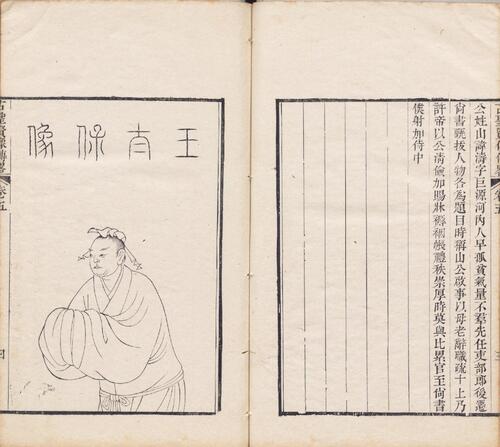 古聖賢像傳略 卷五 三
公姓山諱濤字巨源河內人早孤貧氣量不羣先任吏部郎後遷
尚書甄拔人物各為題目時稱山公啟事以母老辭職疏十上乃
許帝以公清儉加賜牀褥裀帳禮秩崇厚時莫與比累官至尚書
僕射加侍中
王太保像
古聖賢像傳略 卷五 四